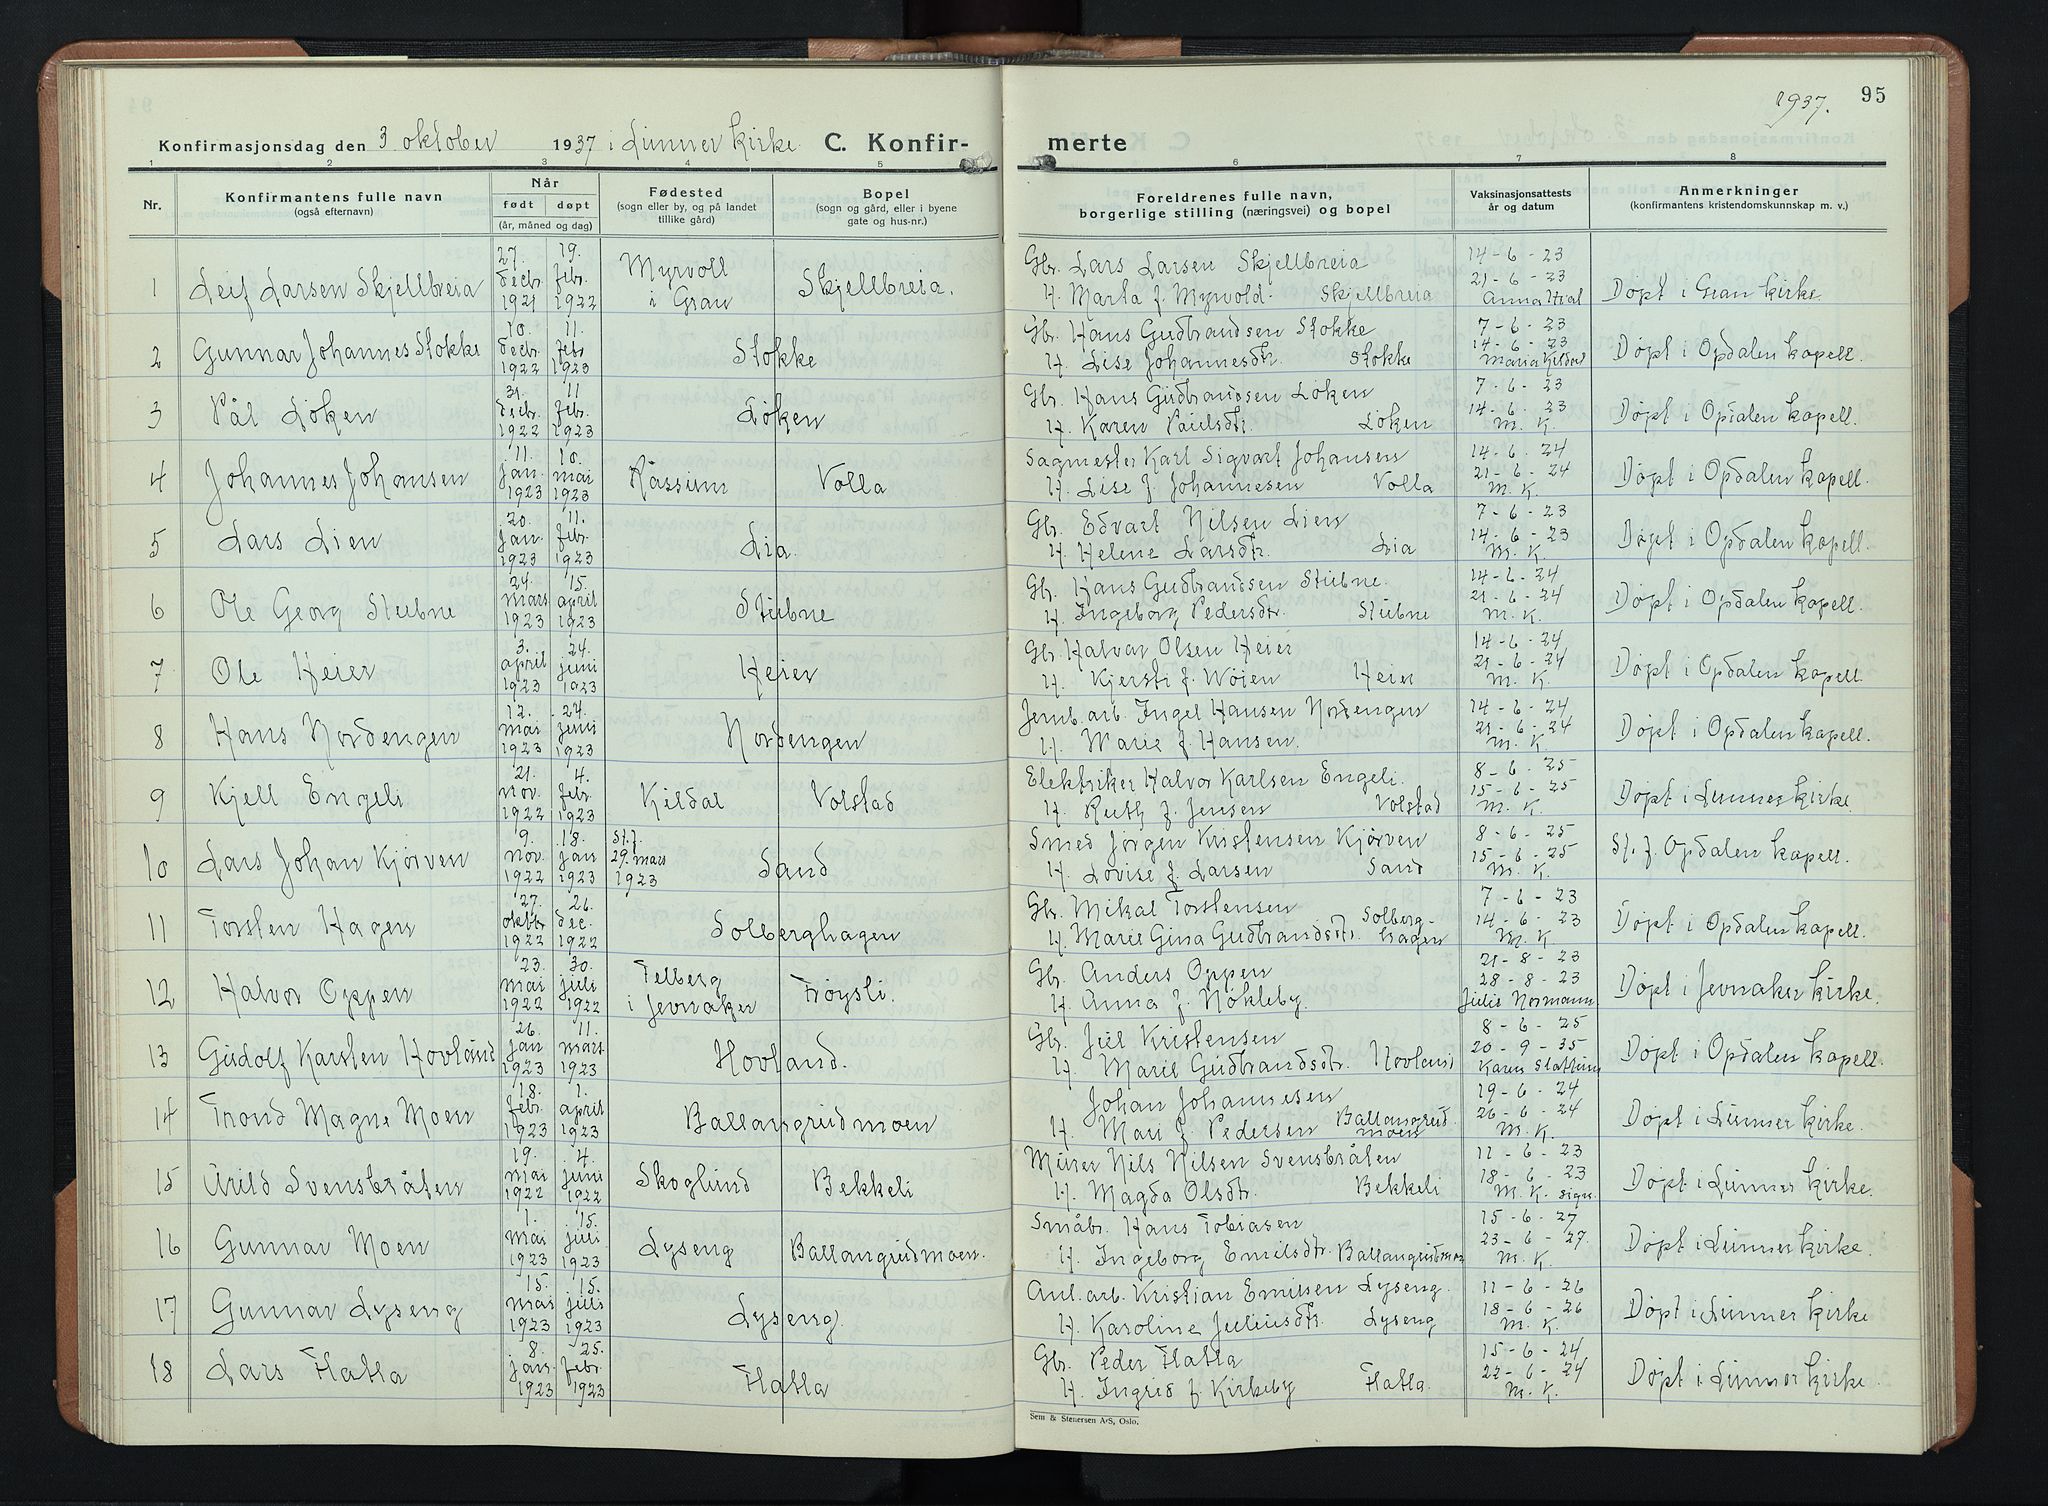 1937. 95
Konfirmasjonsdag den 3 oktober 1937 i Lunner Kirke. C. Konfir-merte
1 2 3 4 5 6 7 8
Nr.
Konfirmantens fulle navn
(også efternavn)
Når
født døpt
(år, måned og dag)
Fødested
(sogn eller by, og på landet
tillike gård)
Bopel
(sogn og gård, eller i byene
gate og hus-nr.)
Foreldrenes fulle navn,
borgerlige stilling (næringsvei) og bopel
Vaksinasjonsattests
år og datum
Anmerkninger
(konfirmantens kristendomskunnskap m. v.)
27. 19. Myrvoll Gbr. Lars Larsen Skjellbreia 14-6-23
1 Leif Larsen Skjellbreia decbr. febr. i Gran Skjellbreia. 21-6-23 Døpt i Gran kirke
1921 1922 H. Marta f. Myrvold. Skjellbreia
10. 11. Gbr. Hans Gudbrandsen Stokke 7-6-23
2 Gunnar Johannes Stokke decbr. febr. Stokke 14-6-23 Døpt i Opdalen kapell.
1922 1923 H. Lise Johannesdtr. Stokke
31. 11 Gbr. Hans Gudbrandsen Løken 7-6-23
3 Pål Løken decbr. febr. Løken 14-6-23 Døpt i Opdalen kapell.
1922 1923 H. Karen Paulsdtr. Løken M. K.
11. 10. Sagmester Karl Sigvart Johansen 14-6-24
4 Johannes Johansen jan. mai Råssum Volla 21-6-24 Døpt i Opdalen kapell.
1923 1923 H. Lise f. Johannesen Volla M. K.
20. 11. Gbr. Edvart Nilsen Lien 7-6-23
5 Lars Lien jan. febr. Lia. 14-6-23 Døpt i Opdalen kapell.
1923 1923 H. Helene Larsdtr. Lia M. K.
24. 15. Gbr. Hans Gudbrandsen Stubne. 14-6-24
6 Ole Georg Stubne mars april Stubne 21-6-24 Døpt i Opdalen kapell.
1923 1923 H. Ingeborg Pedersdtr. Stubne M. K.
3. 24. Gbr. Halvor Olsen Heier 14-6-24
7 Ole Heier april juni Heier 21-6-24 Døpt i Opdalen kapell.
1923 1923 H. Kjersti f. Wøien Heier M. K.
12. 24. Jernb. arb. Ingel Hansen Nordengen 14-6-24
8 Hans Nordengen mai juni Nordengen 21-6-24 Døpt i Opdalen kapell.
1923 1923 H. Marie f. Hansen. M. K.
21. 4. Elektriker Halvor Karlsen Engeli. 8-6-25
9 Kjell Engeli nov. febr. Kildal Volstad 15-6-25 Døpt i Lunner kirke.
1922 1923 H. Ruth f. Jensen Volstad M. K.
9. 18. St. f. Smed Jørgen Kristensen Kjørven 8-6-25
10 Lars Johan Kjørven nov. jan 29. mars Sand 15-6-25 St. f. Opdalen kapell.
1922 1923 1923 H. Lovise f. Larsen Sand M. K.
27. 26. Gbr. Mikal Torstensen Solberg- 7-6-23
11 Torsten Hagen oktbr. dec. Solberghagen 14-6-23 Døpt i Opdalen kapell.
1922 1922 H. Marie Gina Gudbrandsdtr. hagen M. K.
23. 30. Felberg Gbr. Anders Oppen 21-8-23
12 Halvor Oppen mai juli i Jevnaker Frøysli. 28-8-23 Døpt i Jevnaker kirke.
1922 1922 H. Anna f. Nøkleby. Julie Normann
26. 11. Gbr. Juel Kristensen 8-6-25
13 Gudolf Karsten Hovland jan mars Hovland. 20-9-35 Døpt i Opdalen kapell.
1923 1923 H. Marie Gudbrandsdtr. Hovland Karen
18. 1. Johan Johannesen 19-6-24
14 Trond Magne Moen febr. april Ballangrudmoen 26-6-24 Døpt i Lunner kirke.
1923 1923 H. Mari f. Pedersen Ballangrud moen M. K.
19. 4. Murer Nils Nilsen Svensbråten 11-6-23
15 Arild Svensbråten mai juni Skoglund Bekkeli 18-6-23 Døpt i Lunner kirke.
1922 1922 H. Magda Olsdtr. Bekkeli M. K. sign.
1. 15. Småbr. Hans Tobiasen 15-6-27
16 Gunnar Moen mai juli Lyseng Ballangrudmoen. 23-6-27. Døpt i Lunner kirke.
1923 1923 H. Ingeborg Emilsdtr. Ballangrudmoen M. K.
15. 15. Anl. arb. Kristian Emilsen Lyseng. 11-6-26
17 Gunnar Lyseng mai juli Lyseng. 18-6-26 Døpt i Lunner kirke
1923 1923 H. Karoline Juliusdtr. Lyseng M. K.
8. 25. Gbr. Peder Flatla 15-6-24
18 Lars Flatla jan. febr. Flatla 22-6-24 Døpt i Lunner kirke.
1923 1923 H. Ingrid f. Kirkeby Flatla. M. K.
Sem & Stenersen A/S, Oslo.